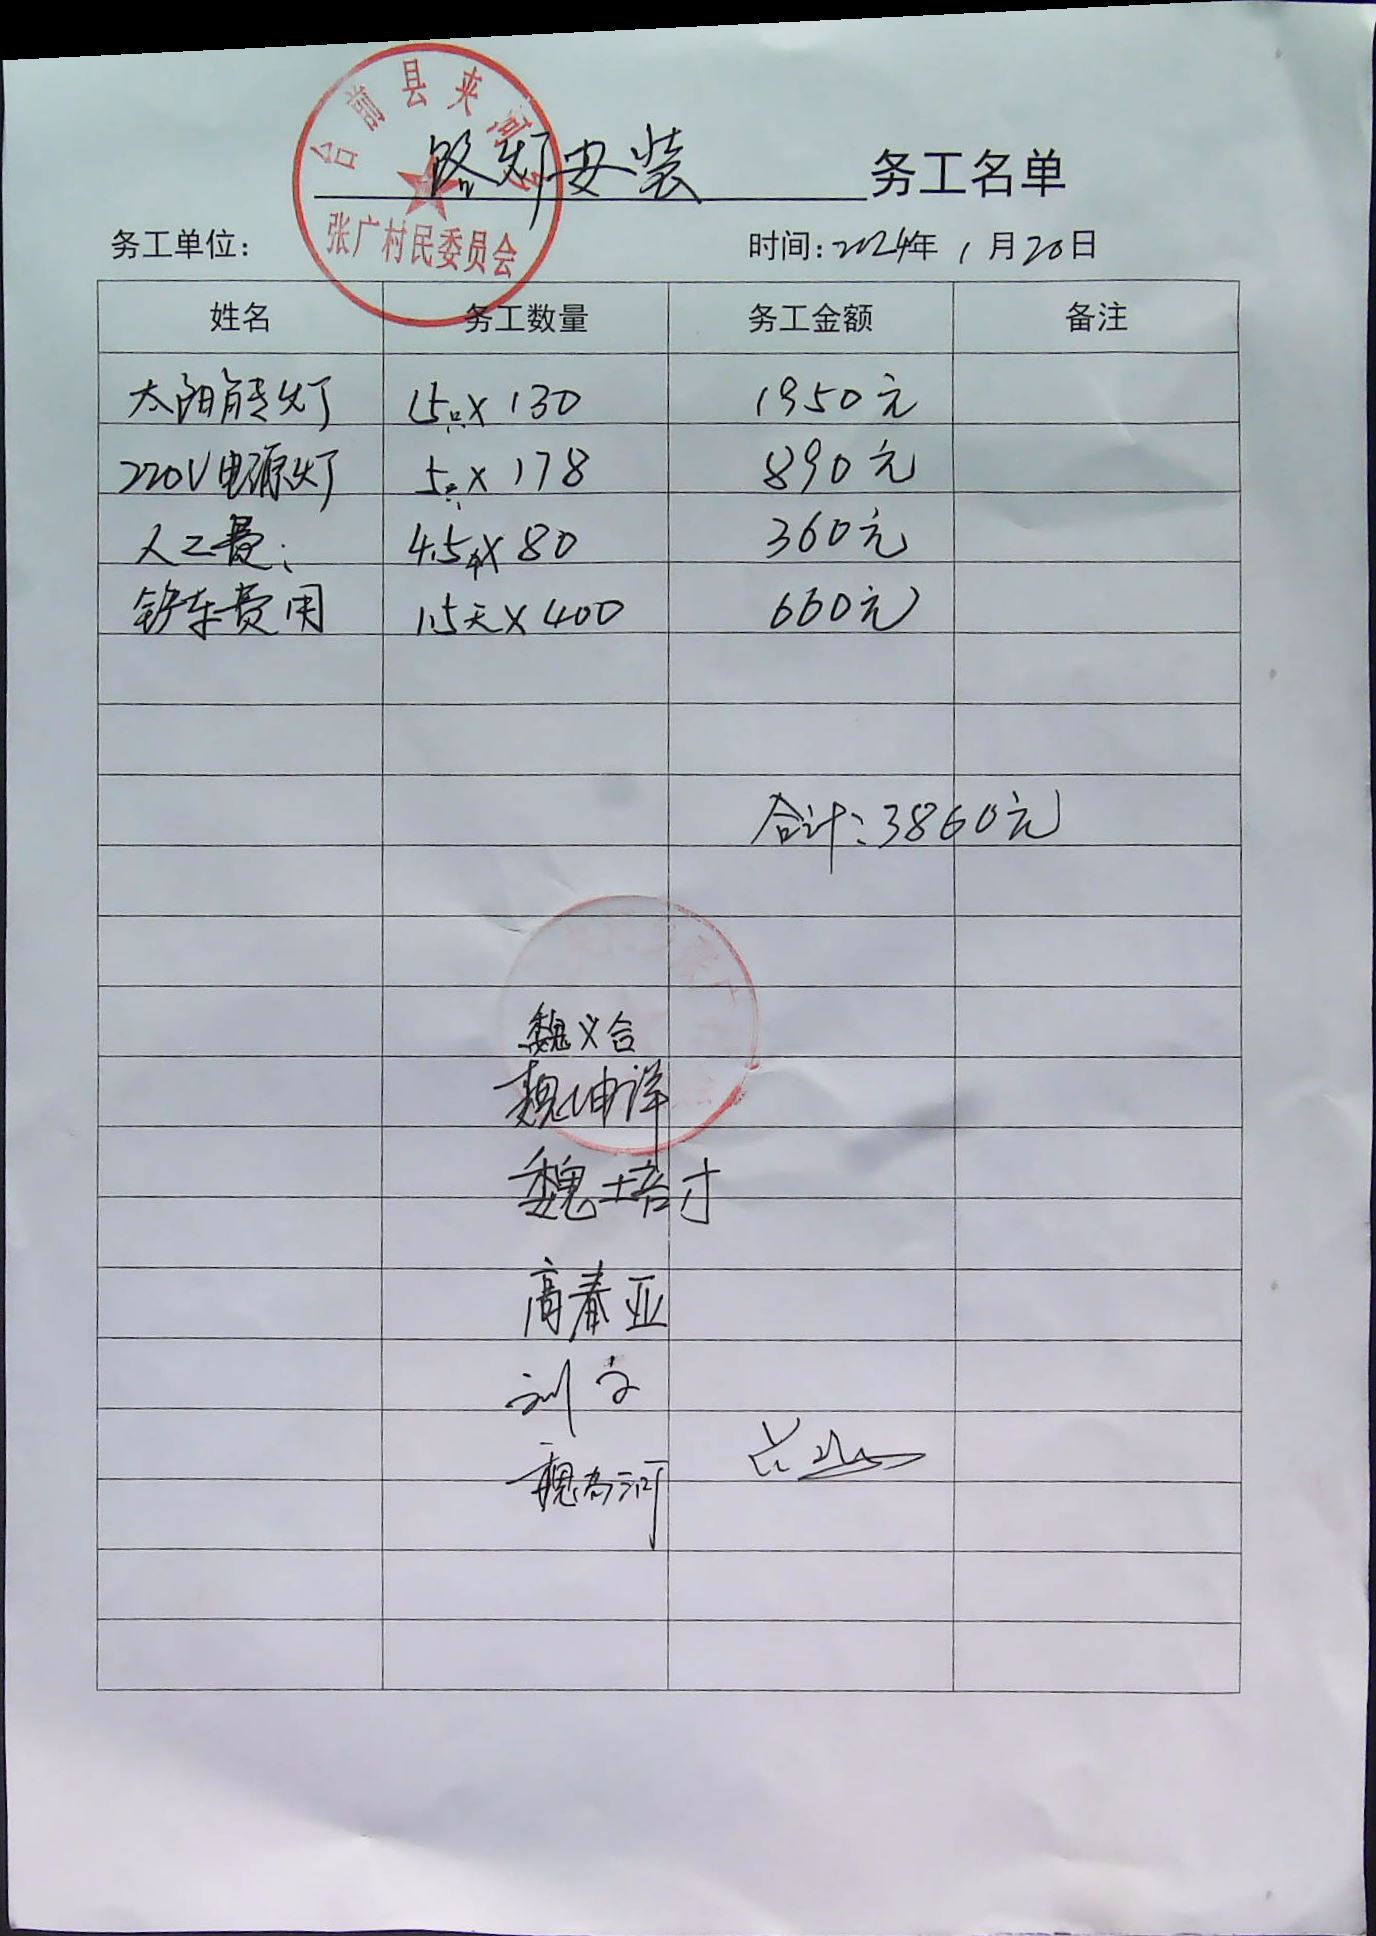 台前县夹河乡
张广村民委员会
路灯安装 务工名单
务工单位： 时间：2024年1月20日
姓名 务工数量 务工金额 备注
太阳能灯 15只×130 1950元
220V电源灯 5只×178 890元
人工费： 4.5个×80 360元
铲车费用 1.5天×400 660元
合计：3860元
魏义合
魏坤洋
魏培才
高春亚
刘文
魏高河